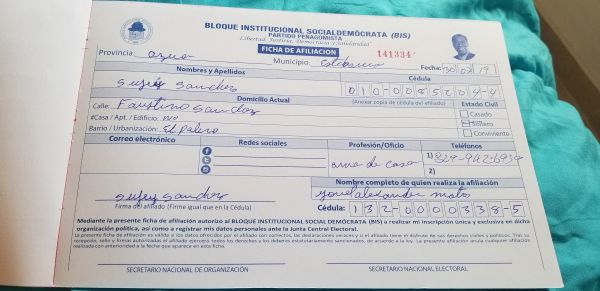 BLOQUE INSTITUCIONAL SOCIALDEMÓCRATA (BIS)
PARTIDO PENAGOMISTA
Libertad, Justicia, Democracia y Solidaridad
FICHA DE AFILIACIÓN
141334
Provincia: azua Municipio: Estebania Fecha: 30/03/19
Nombres y Apellidos Cédula
sujey sanchez 010-0085204-4
Domicilio Actual (Anexar copia de cédula del afiliado) Estado Civil
Calle: Faustino Sanchez Casado
#Casa / Apt. / Edificio: Soltero
Barrio / Urbanización: El palero Conviviente
Correo electrónico Redes sociales Profesión/Oficio Teléfonos
ama de casa 1) 829-942-6939
2)
Nombre completo de quien realiza la afiliación
sujey sanchez yonel alexander mato
Firma del afiliado (Firme igual que en la Cédula) Cédula: 132-0000338-5
Mediante la presente ficha de afiliación autorizo al BLOQUE INSTITUCIONAL SOCIALDEMÓCRATA (BIS) a realizar mi inscripción única y exclusiva en dicha
organización política, así como a registrar mis datos personales ante la Junta Central Electoral.
La presente ficha de afiliación es válida si los datos ofrecidos por el afiliado son correctos, las declaraciones veraces y si el afiliado tiene el disfrute de sus derechos civiles y políticos. Tras su
recepción, sello y firmas autorizadas el afiliado ejercerá todos los derechos y los deberes estatutariamente sancionados, de acuerdo a la ley. La presente afiliación anula cualquier afiliación
realizada con anterioridad a la fecha que aparece en esta ficha.
SECRETARIO NACIONAL DE ORGANIZACIÓN SECRETARIO NACIONAL ELECTORAL